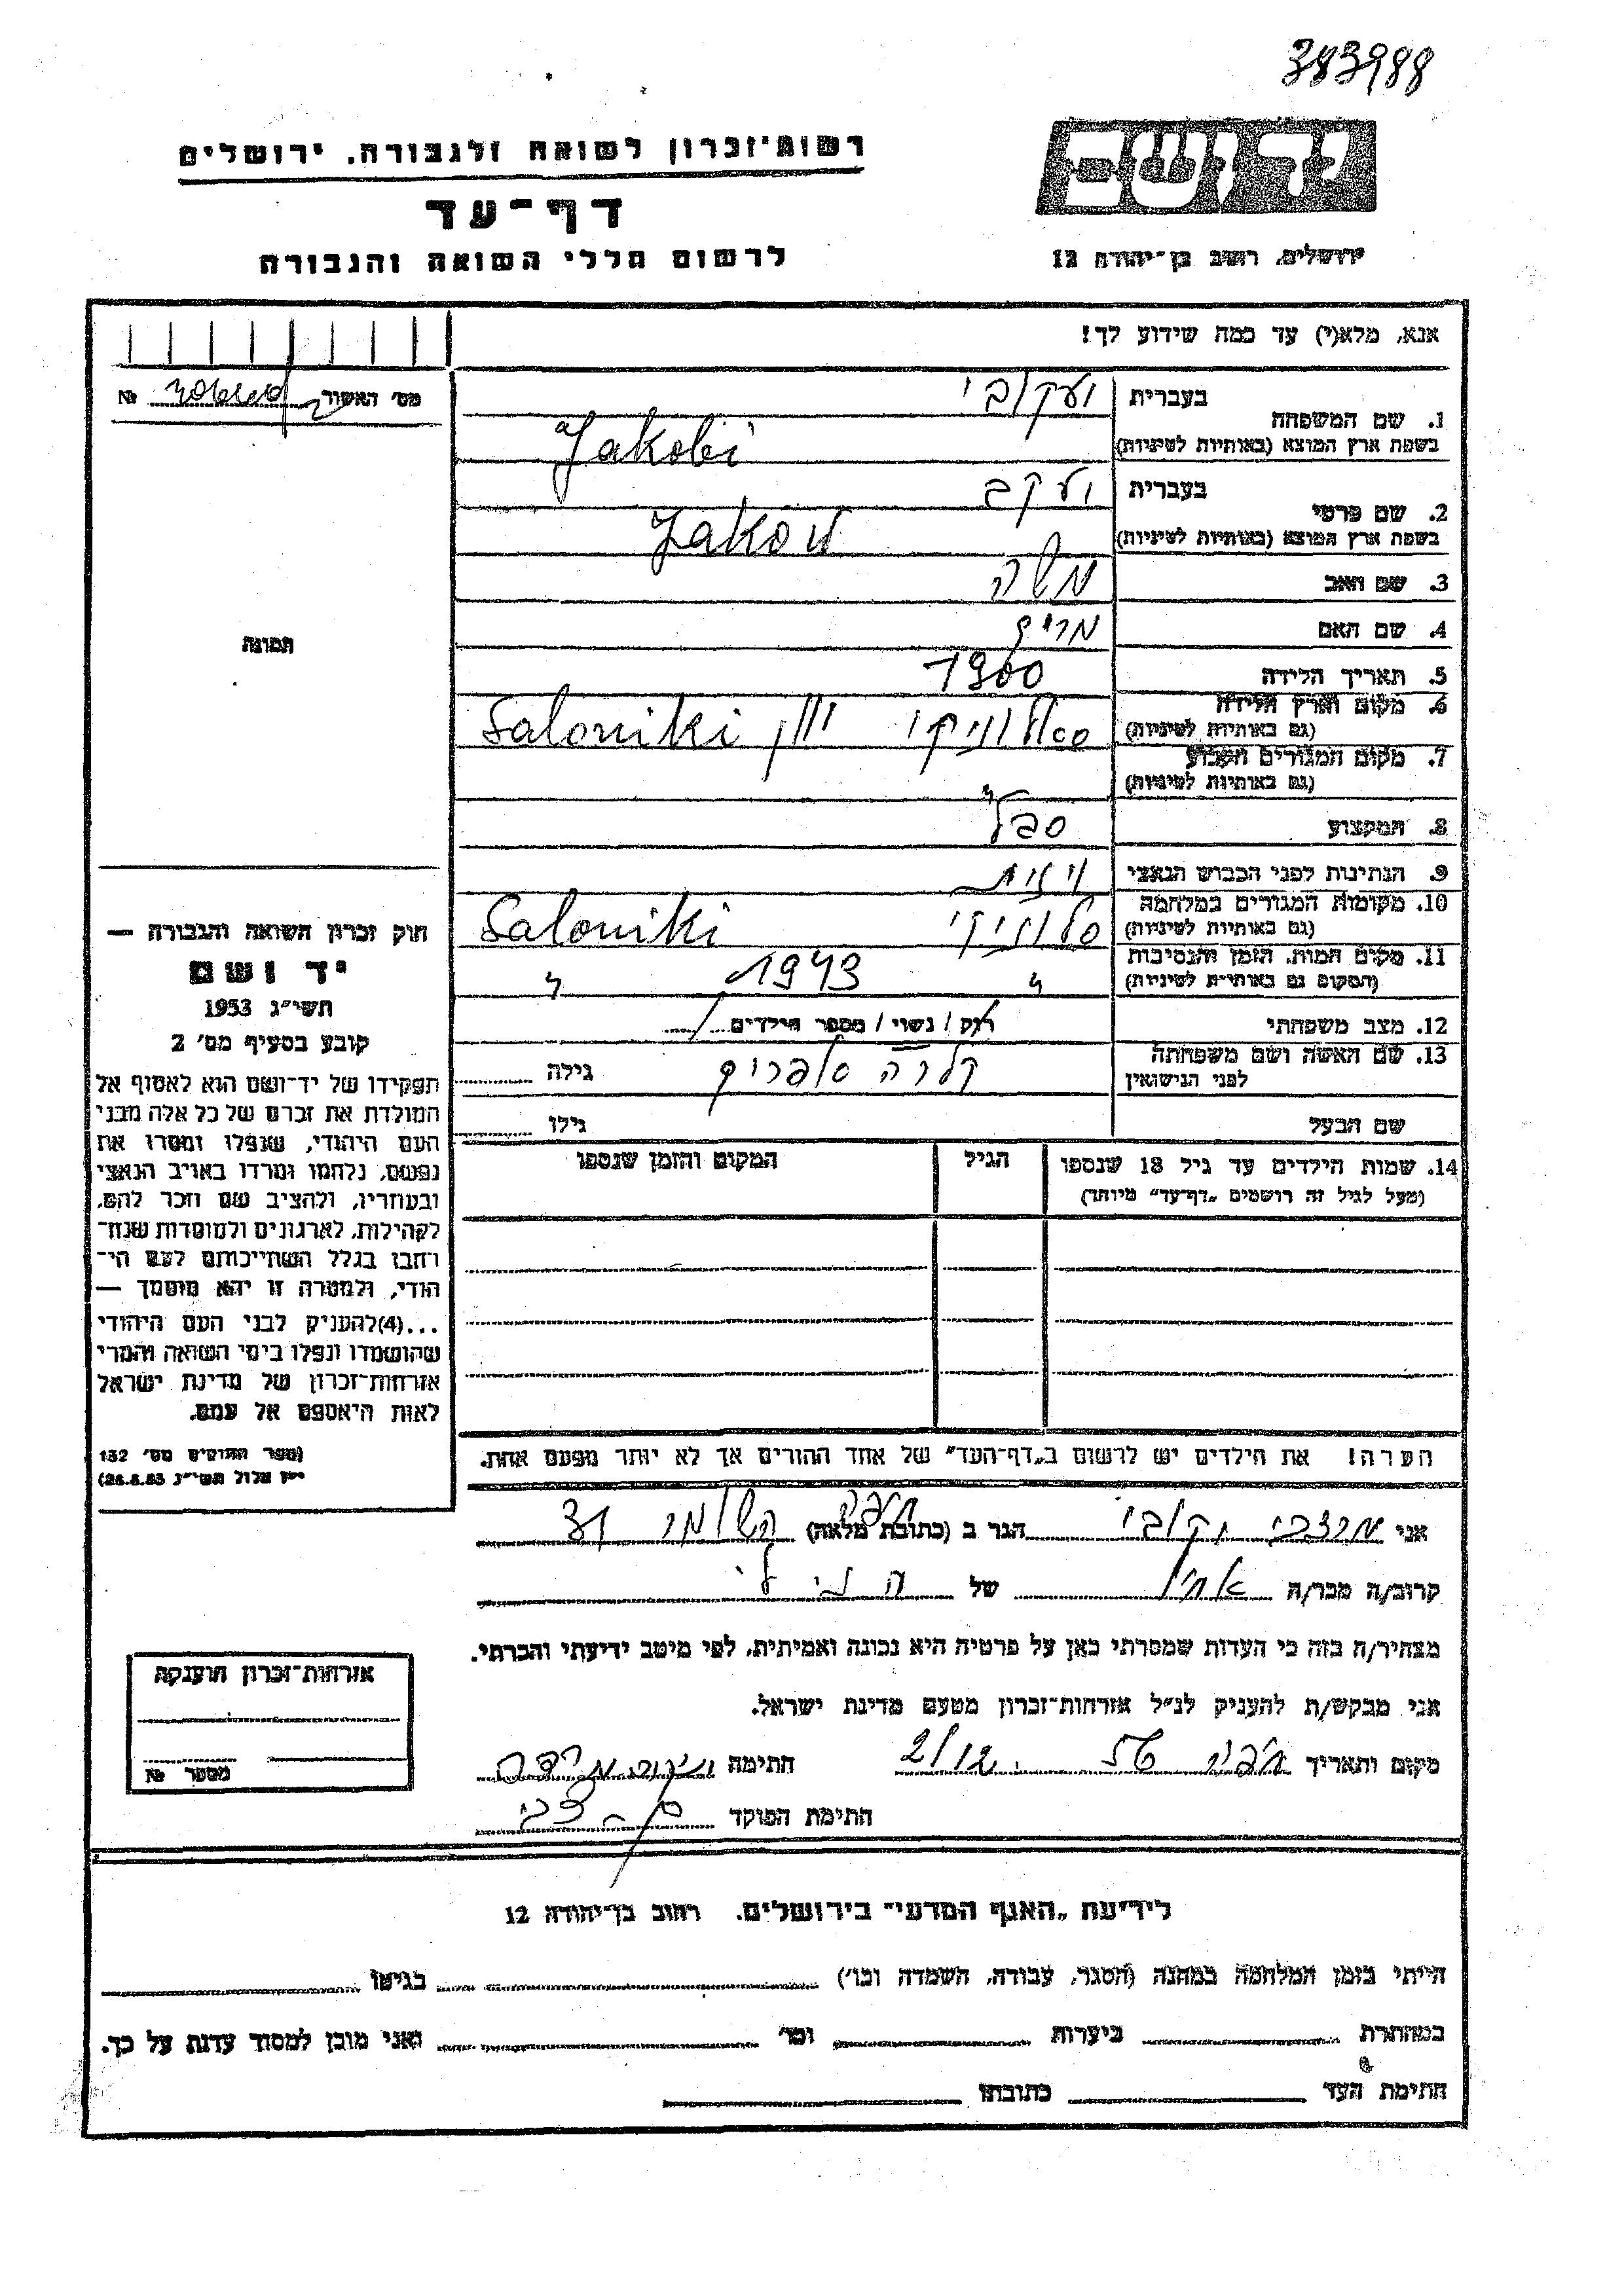 383988
רשות־זכרון לשואה ולגבורה, ירושלים
דף־עד
לרשום חללי השואה והגבורה
ירושלים, רחוב בן־יהודה 12
אנא, מלא(י) עד כמה שידוע לך!
מס׳ האשור № 
1. שם המשפחה
בעברית יעקובי
בשפת ארץ המוצא (באותיות לטיניות) Jakobi
2. שם פרטי
בעברית יעקב
בשפת ארץ המוצא (באותיות לטיניות) Jakov
3. שם האב משה
4. שם האם מרים
5. תאריך הלידה 1900
6. מקום וארץ הלידה
(גם באותיות לטיניות) סאלוניקי יוון Saloniki
7. מקום המגורים הקבוע
(גם באותיות לטיניות) "
8. המקצוע סבל
9. הנתינות לפני הכבוש הנאצי יונית
10. מקומות המגורים במלחמה
(גם באותיות לטיניות) סלוניקי Saloniki
11. מקום המות, הזמן והנסיבות
(המקום גם באותיות לטיניות) " 1943 "
12. מצב משפחתי רוק / נשוי / מספר הילדים
13. שם האשה ושם משפחתה
לפני הנישואין קלרה גילה
שם הבעל גילו
14. שמות הילדים עד גיל 18 שנספו
(מעל לגיל זה רושמים „דף־עד״ מיוחד)
הגיל
המקום והזמן שנספו
הערה! את הילדים יש לרשום ב„דף־העד״ של אחד ההורים אך לא יותר מפעם אחת.
תמונה
חוק זכרון השואה והגבורה —
יד ושם
תשי״ג 1953
קובע בסעיף מס׳ 2
תפקידו של יד־ושם הוא לאסוף אל
המולדת את זכרם של כל אלה מבני
העם היהודי, שנפלו ומסרו את
נפשם, נלחמו ומרדו באויב הנאצי
ובעוזריו, ולהציב שם וזכר להם,
לקהילות, לארגונים ולמוסדות שנח־
רבו בגלל השתייכותם לעם הי־
הודי, ולמטרה זו יהא מוסמך —
...(4)להעניק לבני העם היהודי
שהושמדו ונפלו בימי השואה והמרי
אזרחות־זכרון של מדינת ישראל
לאות היאספם אל עמם.
(ספר החוקים מס׳ 132
י״ז אלול תשי״ג 28.8.53)
אני מרדכי יקובי הגר ב (כתובת מלאה) חיפה 31
קרוב/ה מכר/ה אח של הנ״ל
מצהיר/ה בזה כי העדות שמסרתי כאן על פרטיה היא נכונה ואמיתית, לפי מיטב ידיעתי והכרתי.
אני מבקש/ת להעניק לנ״ל אזרחות־זכרון מטעם מדינת ישראל.
מקום ותאריך חיפה 56 2/12 חתימה
חתימת הפוקד
אזרחות־זכרון הוענקה
מספר №
לידיעת „האגף המדעי״ בירושלים. רחוב בן־יהודה 12
הייתי בזמן המלחמה במחנה (הסגר, עבודה, השמדה וכו׳) בגיטו
במחתרת ביערות וכו׳ ואני מוכן למסור עדות על כך.
חתימת העד כתובתו